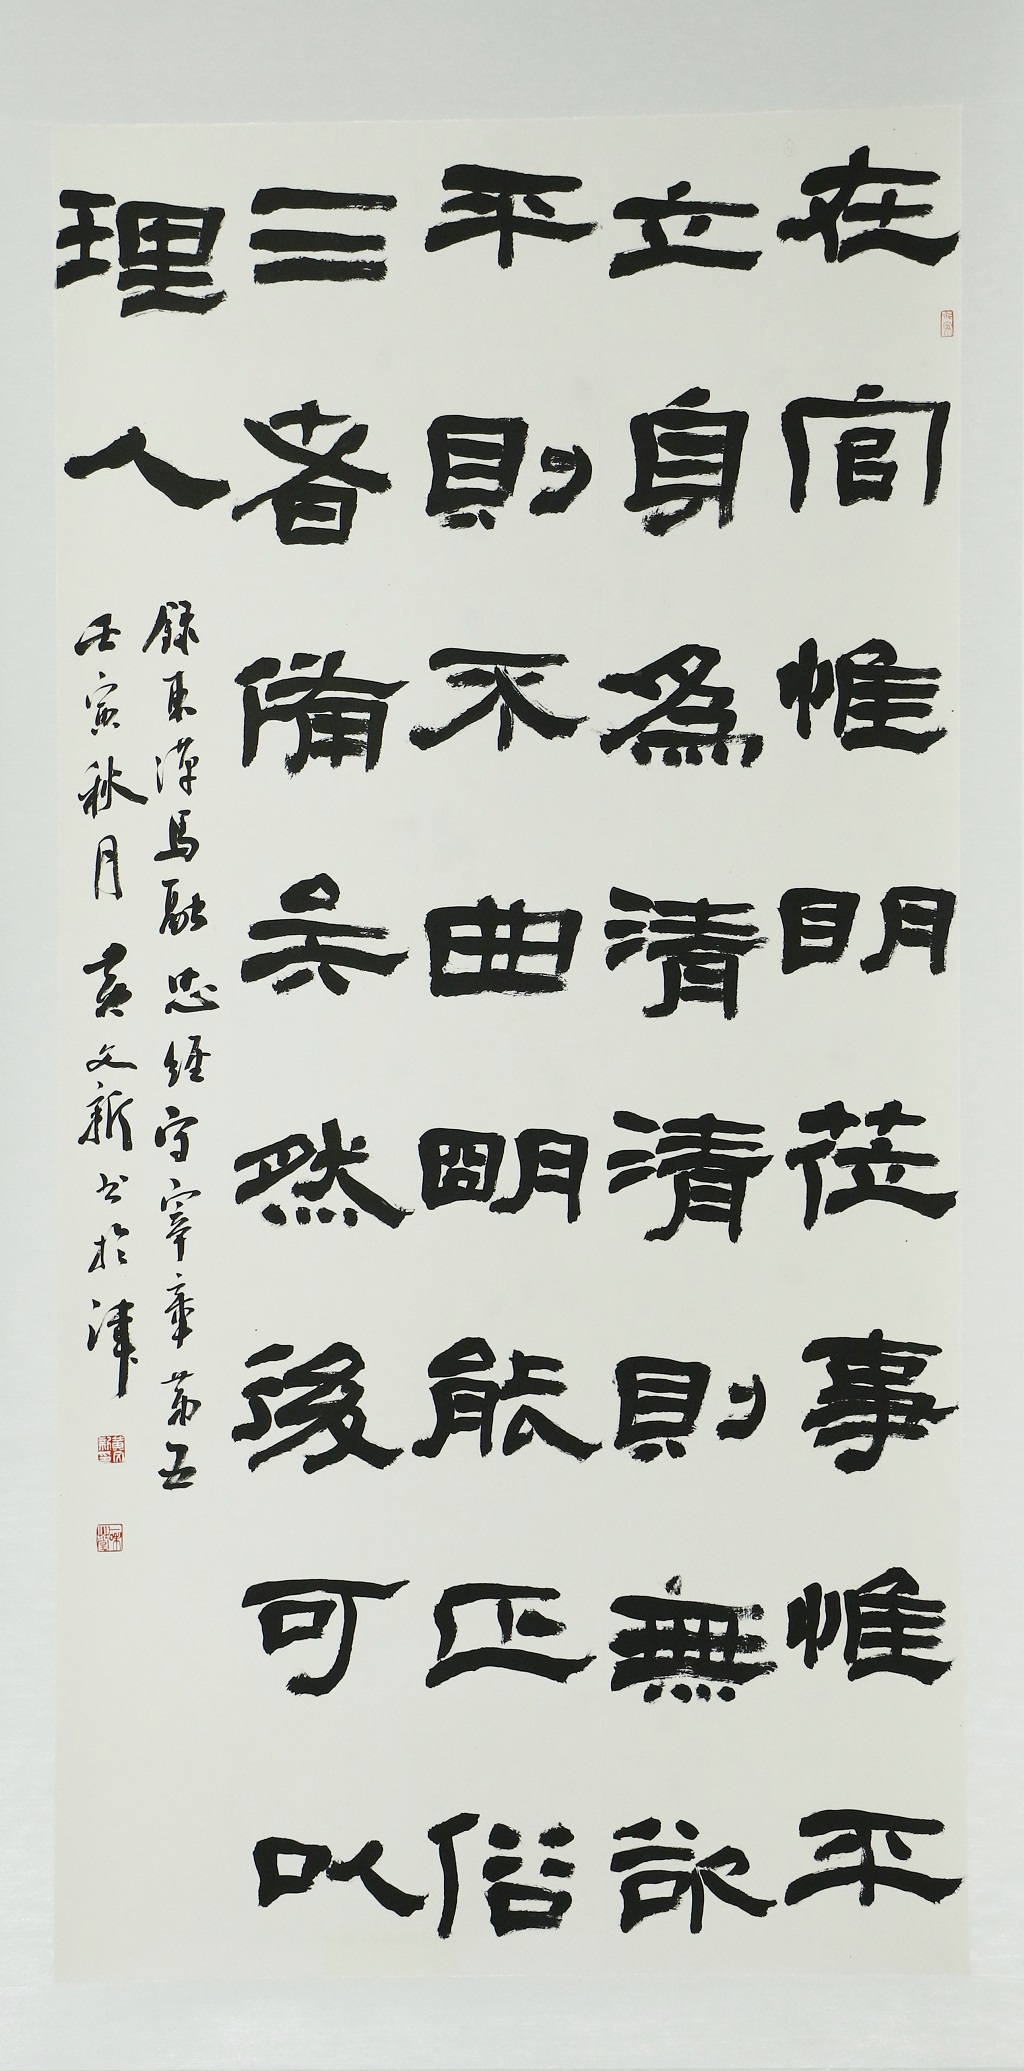 在官惟明莅事惟平
立身爲清清則無欲
平則不曲明能正俗
三者備矣然後可以
理人
録東漢馬融忠經守宰章第五
壬寅秋月黄文新书於津
黄文新印